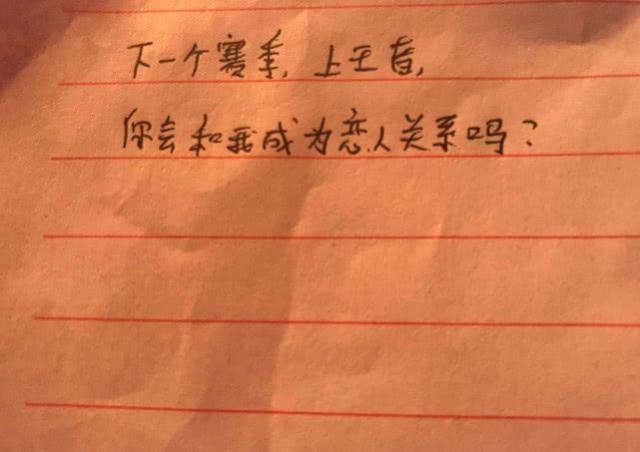 下一个赛季,上王者,
你会和我成为恋人关系吗?